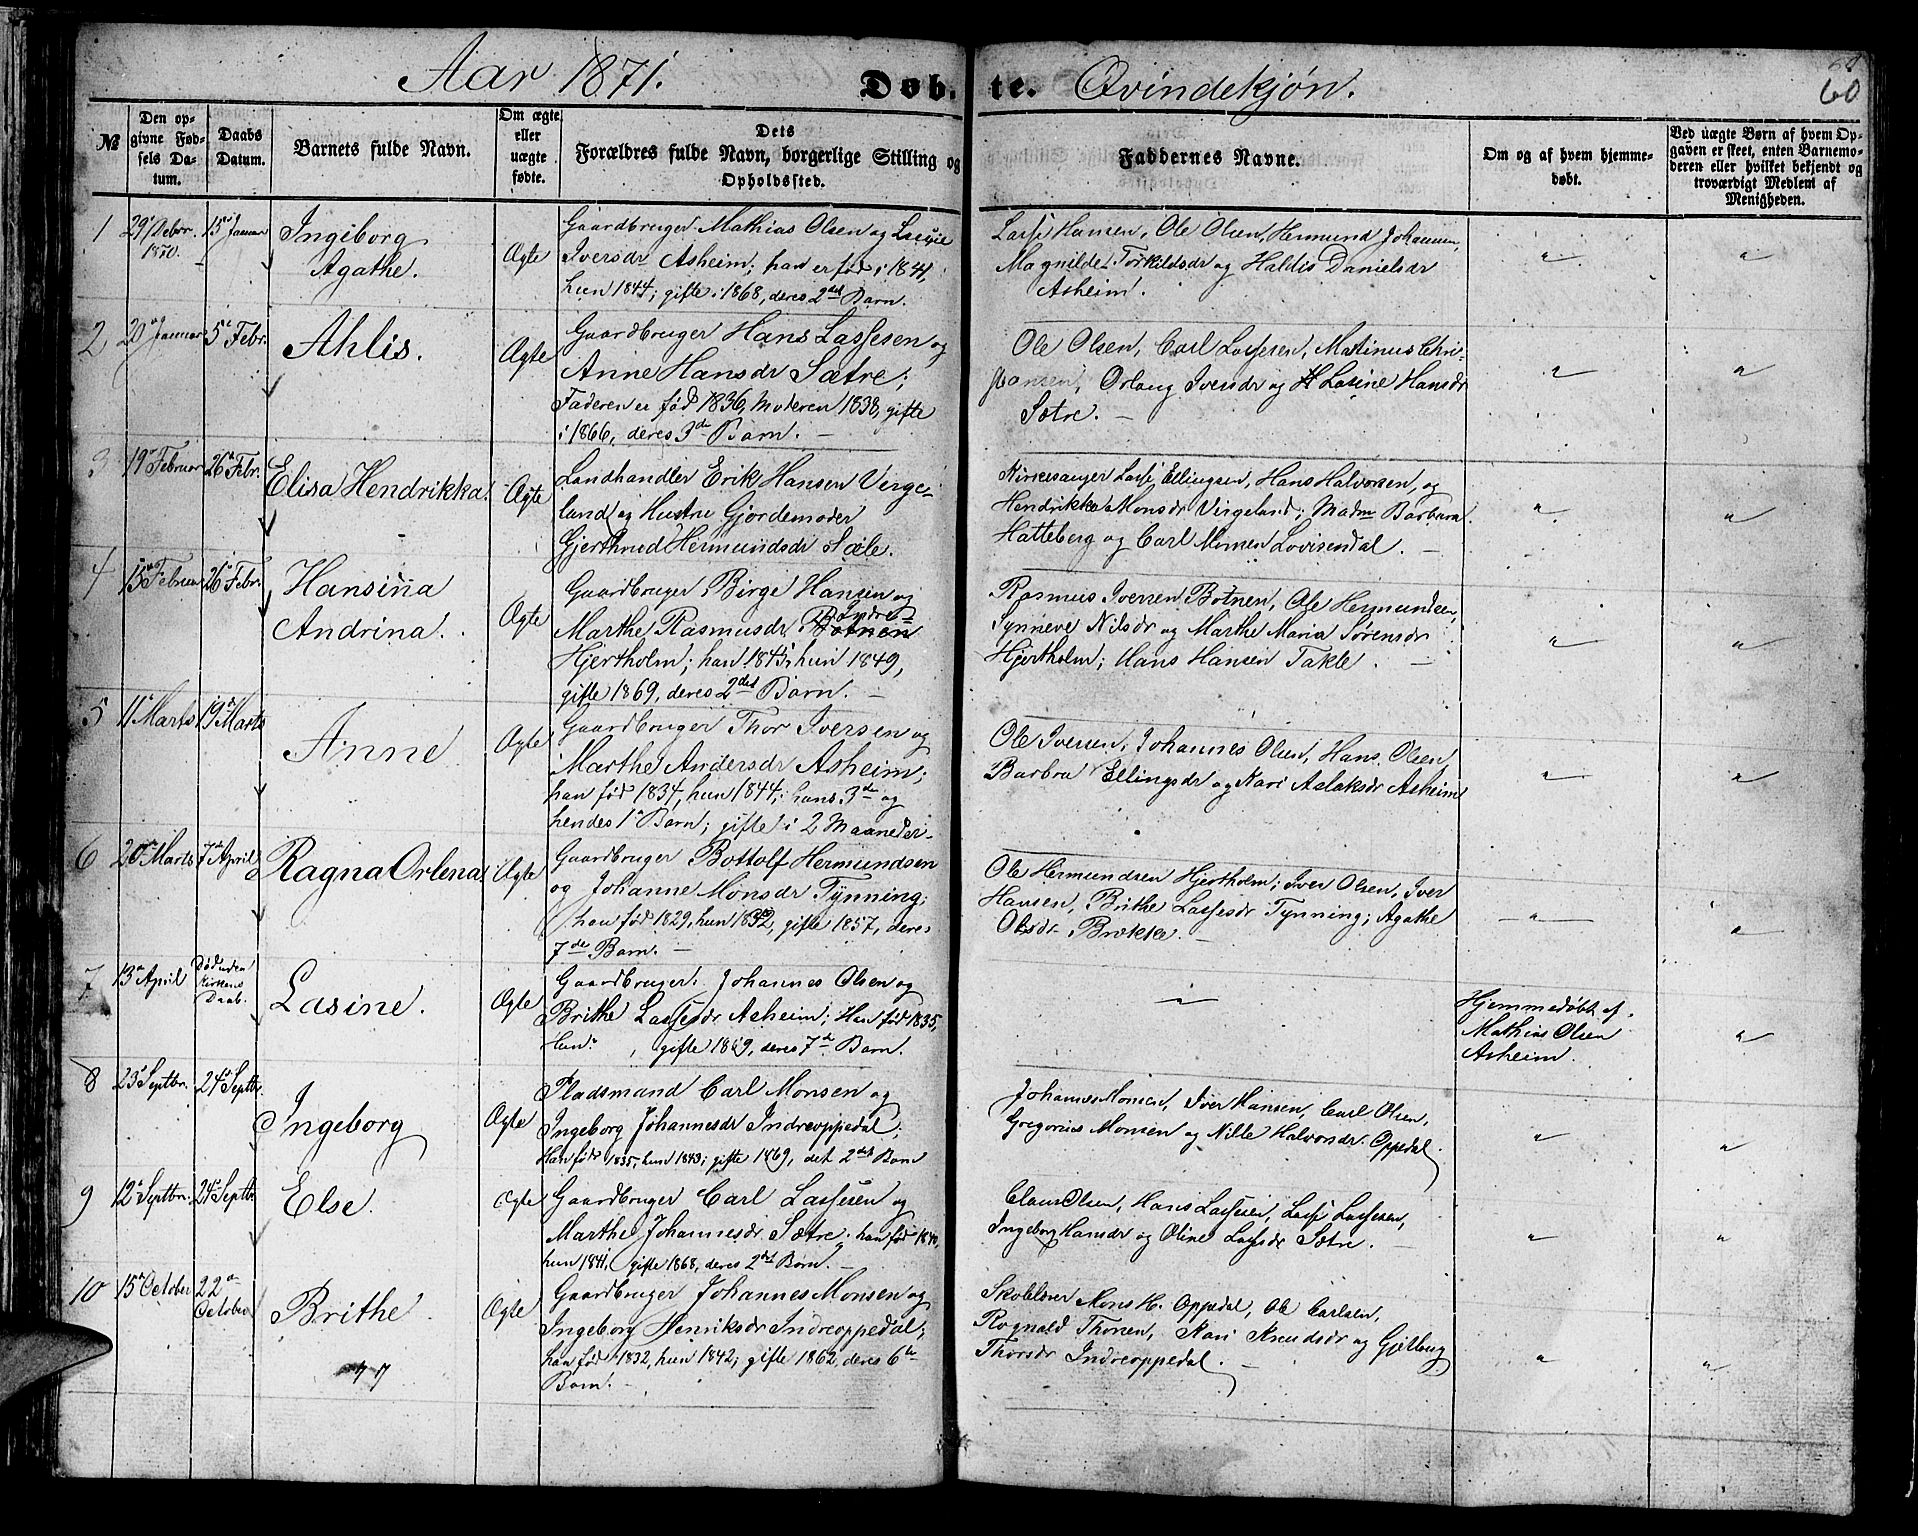 Aar 1871. Døb- te. Qvindekjøn. 60
№
Den op-
givne Fød-
sels Da-
tum.
Daabs
Datum.
Barnets fulde Navn.
Om ægte
eller
uægte
fødte.
Dets
Forældres fulde Navn, borgerlige Stilling og
Opholdssted.
Faddernes Navne.
Om og af hvem hjemme-
døbt.
Ved uægte Børn af hvem Op-
gaven er skeet, enten Barnemo-
deren eller hvilket bekjendt og
troværdigt Medlem af
Menigheden.
1 29de Debr. 1870. 15de Januar
Ingeborg
Agathe.
Ægte
Gaardbruger Mathias Olsen og
Iversdr Asheim; han er fød i 1841,
hun 1844; gifte i 1868, deres 2det Barn.
Lasse Hansen, Ole Olsen, Hermund Johannen,
Magnilde Torkildsdr og Haldis Danielsdr
Asheim.
2 20de Januar 5te Febr.
Ahlis.
Ægte
Gaardbruger Hans Lassesen og
Anne Hansdr Sætre;
Faderen er fød 1836, Moderen 1838, gifte
i 1866, deres 3de Barn. —
Ole Olsen, Carl Lassesen, Matinus Chri-
stansen, Orlaug Iversdr og Lasine Hansdr
Sætre. —
3 19de Februar 26de Febr.
Elisa Hendrikka.
Ægte
Landhandler Erik Hansen Verge-
land og Hustru Gjordemoder
Gjerthrud Hermundsdr Sæle.
Kirkesanger Lasse Ellingsen, Hans Halvorsen, og
Hendrikka Monsdr Virgeland; Madm Barbara
Hatteberg og Carl Monsen Lovisendal. —
4 13de Februar 26de Febr.
Hansina
Andrina.
Ægte
Gaardbruger Birge Hansen og
Marthe Rasmusdr Botnen Indre-
Hjertholm; han 1845, hun 1849,
gifte 1869, deres 2det Barn. —
Rasmus Iversen Botnen, Ole Hermundsen,
Synneve Nilsdr og Marthe Maria Sørensdr
Hjertholm; Hans Hansen Takle. —
5 11te Marts 19de Marts
Anne
Ægte
Gaardbruger Thor Iversen og
Marthe Andersdr Asheim;
han fød 1834, hun 1844; hans 3de og
hendes 1te Barn; gifte i 2 Maaneder.
Ole Iversen, Johannes Olsen, Hans Olsen,
Barbra Ellingsdr og Kari Aslaksdr Asheim
6 20de Marts 7de April
Ragna Orlena.
Ægte
Gaardbruger Bottolf Hermundsen
og Johanne Monsdr Tynning;
han fød 1829, hun 1832, gifte 1857, deres
7de Barn. —
Ole Hermundsen Hjertholm; Iver Olsen, Iver
Hansen, Brithe Lassesdr Tynning; Agathe
Olsdr Brække. —
7 13de April Død uden
Kirkens
Daab.
Lasine.
Ægte
Gaardbruger Johannes Olsen og
Brithe Lassesdr Asheim; Han fød 1835,
hun " , gifte 1859, deres 7de Barn.
Hjemmedøbt af
Mathias Olsen
Asheim.
8 23de Septbr. 24de Septbr.
Ingeborg
Ægte
Pladsmand Carl Monsen og
Ingeborg Johannesdr Indreoppedal;
Han fød 1835, hun 1843; gifte 1869, det 2det Barn
Johannes Monsen, Iver Hansen, Carl Olsen,
Gregorius Monsen og Nille Halvorsdr Oppedal.
9 12te Septbr. 24de Septbr.
Else.
Ægte
Gaardbruger Carl Lassesen og
Marthe Johannesdr Sætre, han fød 1840,
hun 1841, gifte 1868, deres 2det Barn. —
Claus Olsen, Hans Lassesen, Lasse Lassesen,
Ingeborg Hansdr og Oline Lassesdr Sætre. —
10 15de October 22de
October
Brithe
Ægte
Gaardbruger Johannes Monsen og
Ingeborg Henriksdr Indreoppedal;
han fød 1832, hun 1842; gifte 1862, deres 6te
Barn. —
Skolelærer Mons H. Oppedal, Ole Carlsen,
Rognald Thorsen, Kari Knudsdr og Gjellaug
Thorsdr Indreoppedal. —